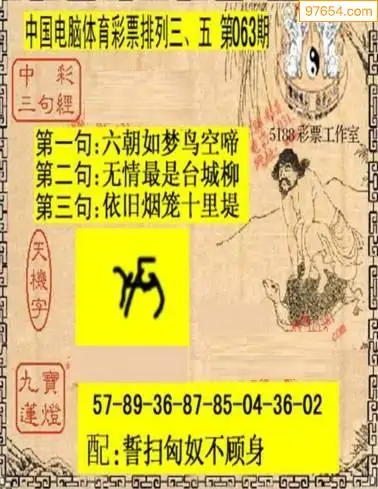 97654.com
中国电脑体育彩票排列三、五 第063期
中彩
三句經
5188彩票工作室
第一句:六朝如梦鸟空啼
第二句:无情最是台城柳
第三句:依旧烟笼十里堤
天機字
九寶
蓮燈
57-89-36-87-85-04-36-02
配:誓扫匈奴不顾身